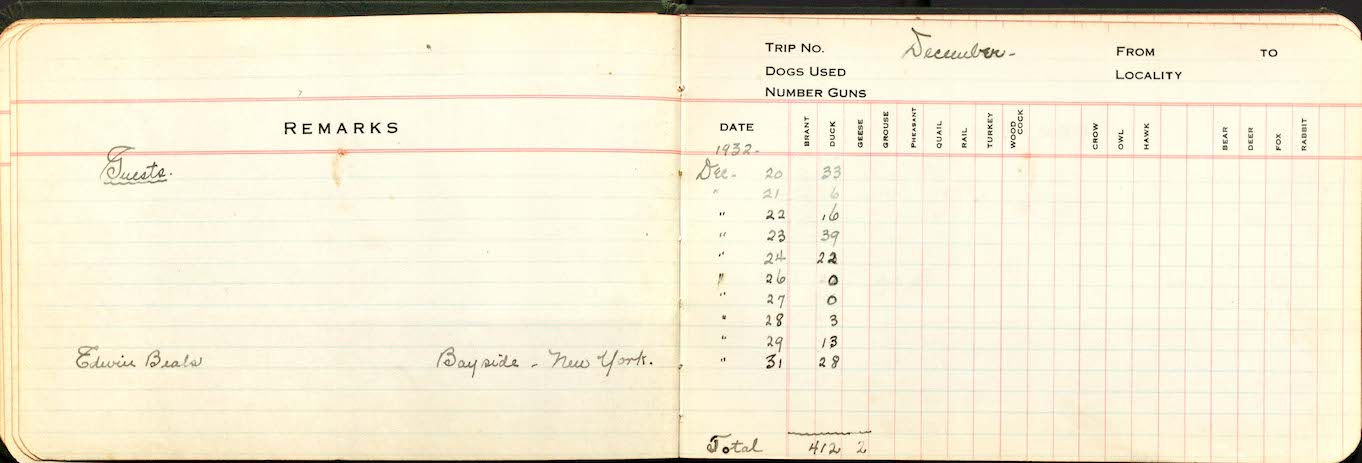 REMARKS
Guests.
Edwin Beals Bayside - New York.
TRIP NO. December - FROM TO
DOGS USED LOCALITY
NUMBER GUNS
DATE BRANT DUCK GEESE GROUSE PHEASANT QUAIL RAIL TURKEY WOOD COCK CROW OWL HAWK BEAR DEER FOX RABBIT
1932-
Dec - 20 33
" 21 6
" 22 16
" 23 39
" 24 22
" 26 0
" 27 0
" 28 3
" 29 13
" 31 28
Total 412 2